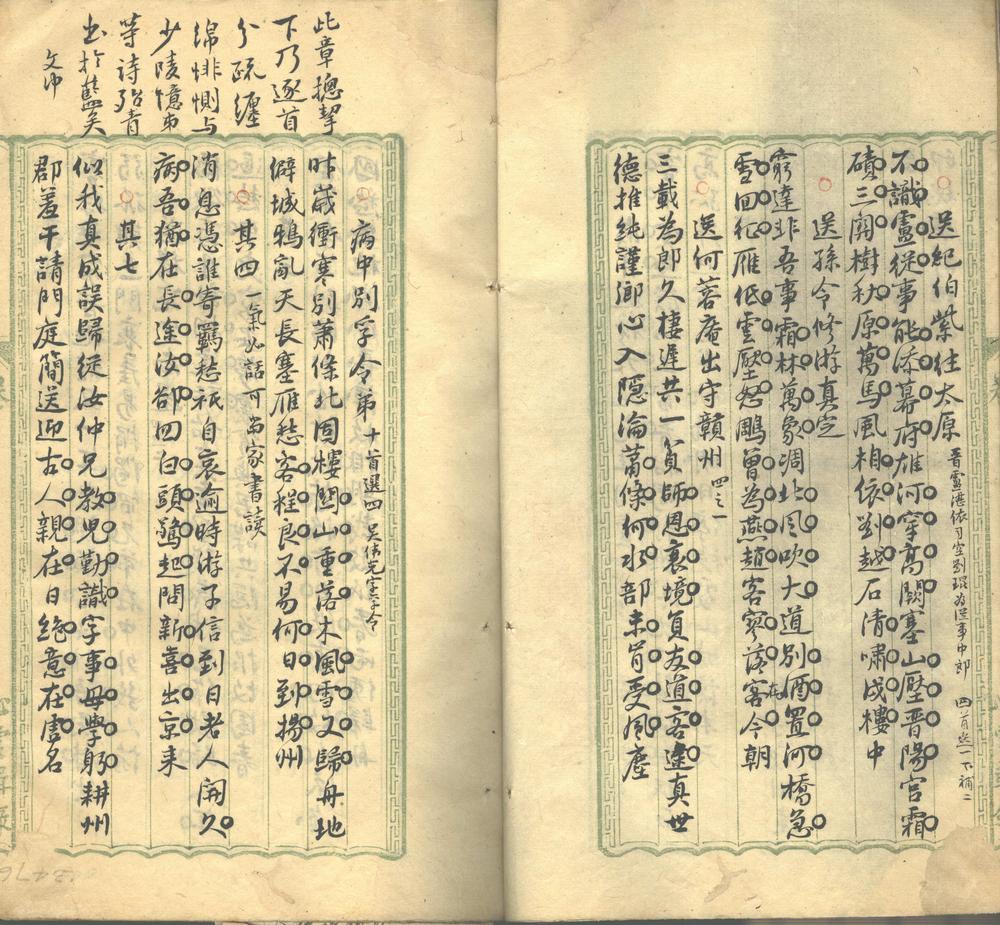 送紀伯紫往太原
晉盧諶依司空劉琨為從事中郎
四首選一下補二
不識盧從事能添幕府雄河穿高闕塞山壓晉陽宮霜
磧三關樹秋原萬馬風相依劉越石清嘯戍樓中
送孫令修游真定
窮達非吾事霜林萬象凋北風吹大道別酒置河橋急
雪回征雁低雲壓怒鵰曾為燕趙客寥落在今朝
送何蓉庵出守贛州
四之一
三載為郎久棲遲共一貧師恩衰境負友道客途真世
德推純謹鄉心入隱淪蕭條何水部未肯受風塵
此章摠挈
下乃逐首
分疏纏
綿悱惻与
少陵憶弟
等詩殆青
出於藍矣
病中別孚令弟
十首選四
昨歲衝寒別蕭條北固樓關山重落木風雪又歸舟地
僻城鴉亂天長塞雁愁客程良不易何日到揚州
其四
一氣如話可當家書讀
消息憑誰寄羈愁祇自哀逾時游子信到日老人開久
病吾猶在長途汝卻回白頭驚起問新喜出京來
其七
似我真成誤歸從汝仲兄教兒勤識字事母學躬耕州
郡羞干請門庭簡送迎古人親在日絕意在虛名